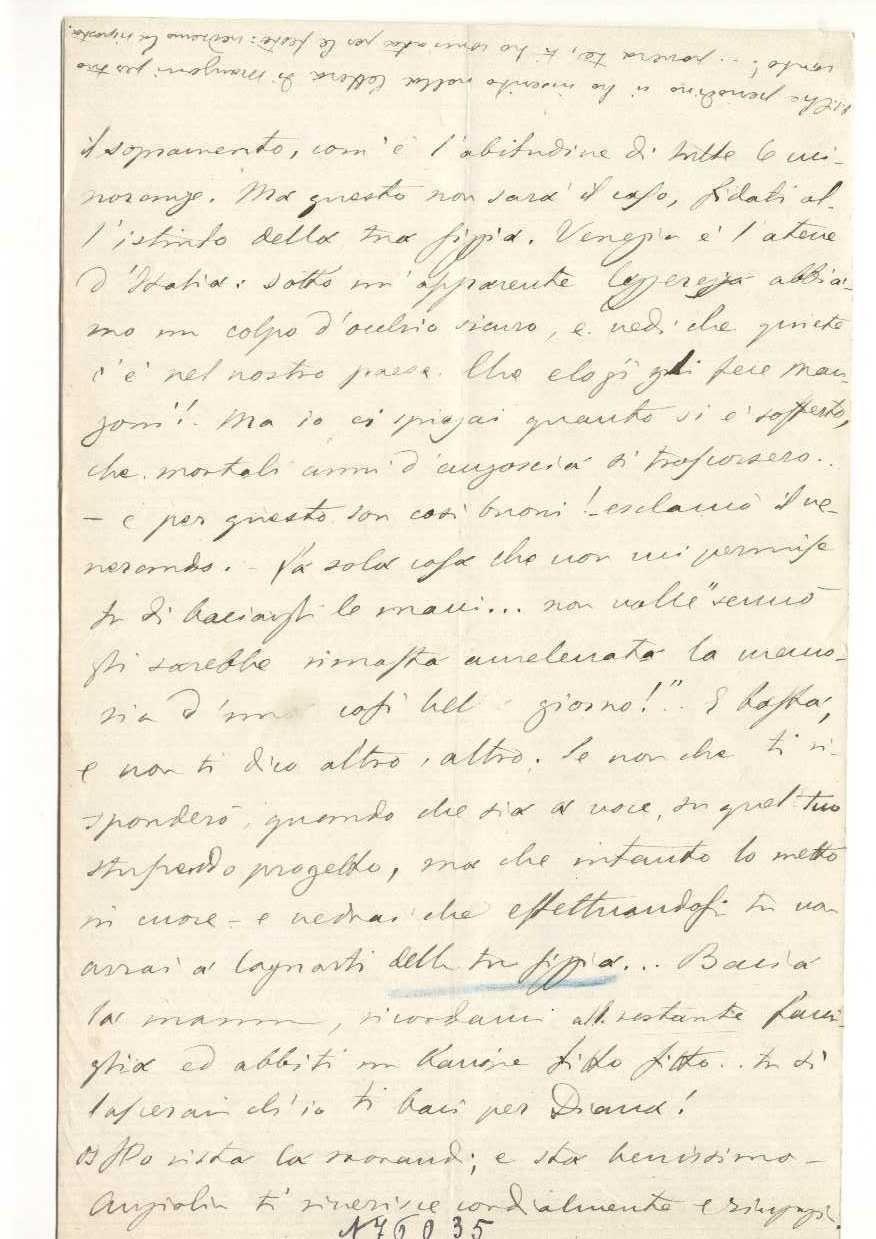 il sopravento, com'è l'abitudine di tutte le mi-
noranze. Ma questo non sarà il caso, fidati al-
l'istinto della tua Pippia. Venezia è l'atene
d'Italia: sotto un'apparente leggerezza abbia-
mo un colpo d'occhio sicuro, e vedi che quiete
c'è nel nostro paese. Che elogi gli fece Man-
zoni! Ma io ci spiegai quanto si è sofferto,
che mortali anni d'angoscia si trascorsero..
- è per questo son così buoni! - esclamò il ve-
nerando. - La sola cosa che non mi permise
fu di baciargli le mani... non volle "sennò
gli sarebbe rimasta avvelenata la memo-
ria d'un così bel giorno!".. E basta,
e non ti dico altro, altro. Se non che ti ri-
sponderò, quando che sia a voce, su quel tuo
stupendo progetto, ma che intanto lo metto
in cuore - e vedrai che effettuandosi tu non
avrai a lagnarti della tua Pippia... Bacia
la mamma, ricordami all. restante fami-
glia ed abbiti un bacione fitto fitto.. tu si
lascerai ch'io ti baci per Diana!
PS Ho vista la Morandi; e sta benissimo -
Angiolin ti riverisce cordialmente e
N76035
Il periodino si ho inserito nella lettera di Manzoni per tuo
conto!.. povera te, ti ho per le feste: vedremo la risposta.